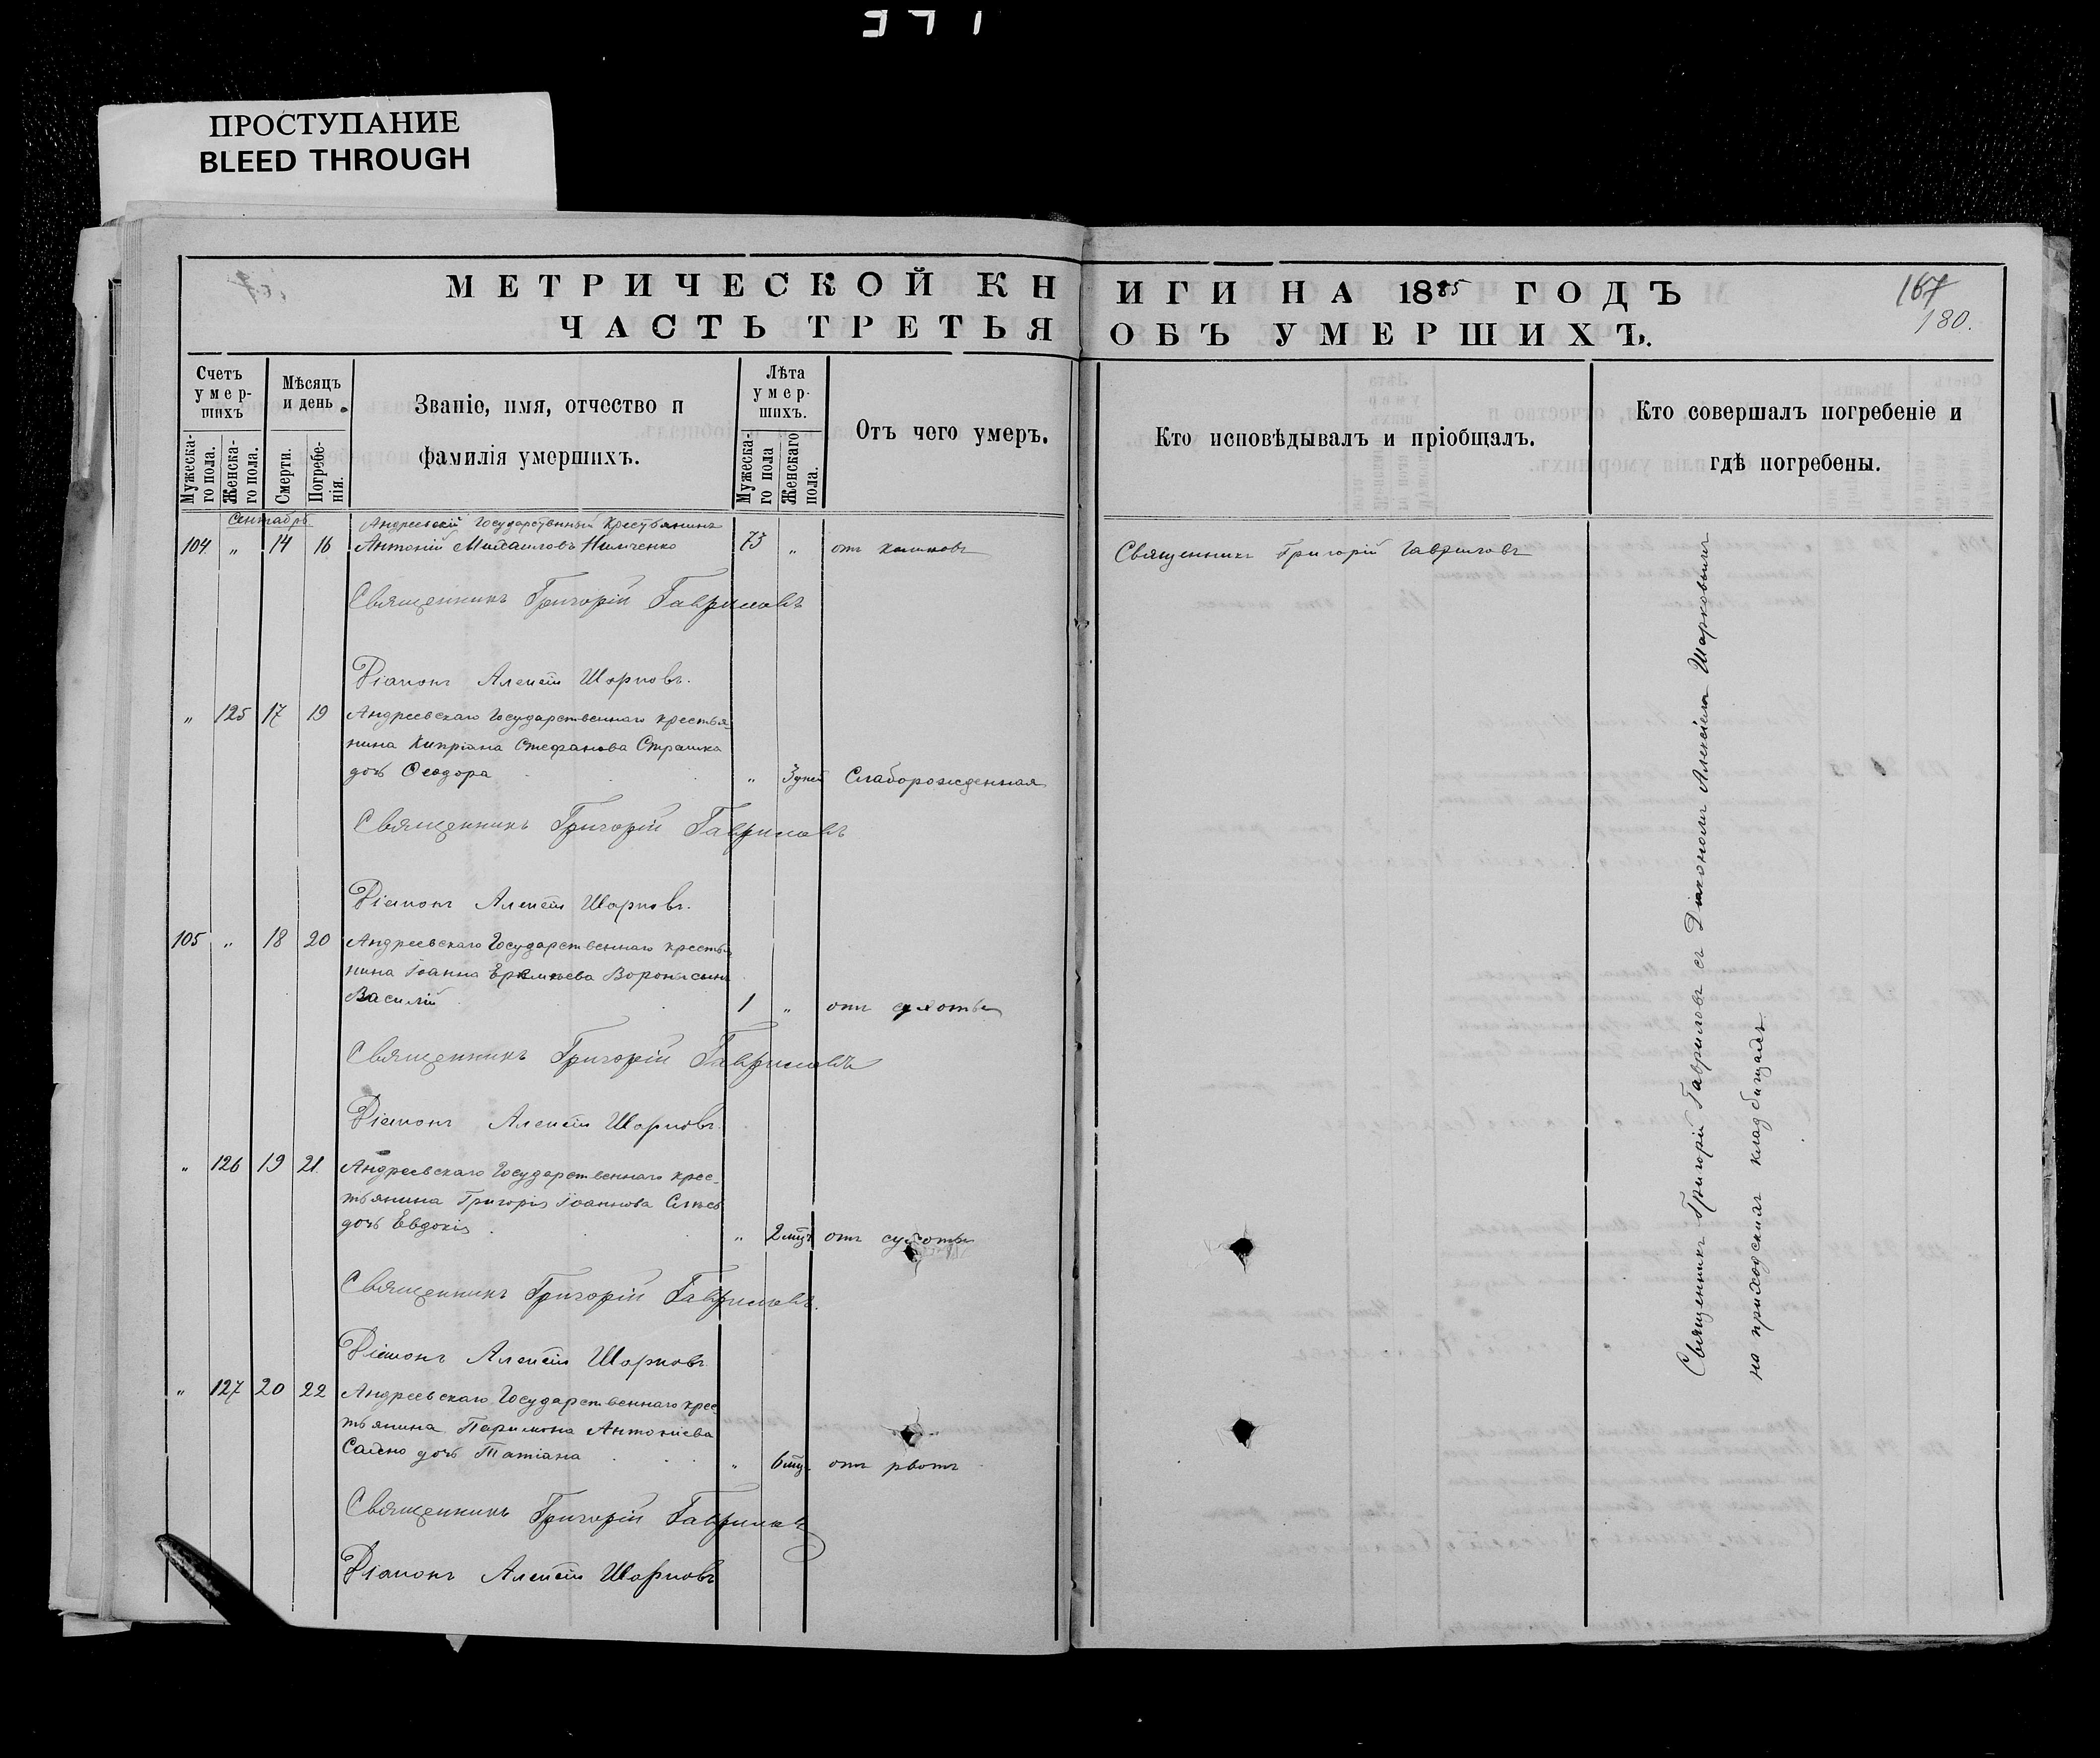 ПРОСТУПАНИЕ
BLEED THROUGH
МЕТРИЧЕСКОЙ КНИГИ НА 1885 ГОДЪ
167
180.
ЧАСТЬ ТРЕТЬЯ ОБЪ УМЕРШИХЪ.
Счетъ умер-шихъ
Мужеска-го пола.
Женска-го пола.
Мѣсяцъ и день
Смерти.
Погребе-нія.
Званіе, имя, отчество и
фамилія умершихъ.
Лѣта умер-шихъ.
Мужеска-го пола
Женскаго пола.
Отъ чего умеръ.
Кто исповѣдывалъ и пріобщалъ.
Кто совершалъ погребеніе и
гдѣ погребены.
Сентябрь
Андреевскій Государственный Крестьянинъ
104 " 14 16 Антоній Михаиловъ 73 " отъ Священникъ Григорій Гавриловъ
Священникъ Григорій Гавриловъ
Діаконъ Алексій Шарковъ.
" 125 17 19 Андреевскаго Государственнаго крестья-
нина Кипріана Стефанова Страшка
дочь Ѳеодора " 3 дней Слаборожденная
Священникъ Григорій Гавриловъ
Діаконъ Алексій Шарковъ.
105 " 18 20 Андреевскаго Государственнаго крестья-
нина Іоанна сынъ
Василій 1 " отъ сухоты
Священникъ Григорій Гавриловъ
Діаконъ Алексій Шарковъ.
" 126 19 21 Андреевскаго Государственнаго крес-
тьянина Григорія Іоаннова
дочь Евдокія " 2 мѣц. отъ сухоты
Священникъ Григорій Гавриловъ.
Діаконъ Алексій Шарковъ
" 127 20 22 Андреевскаго Государственнаго крес-
тьянина Антоніева
дочь Татіана " 6 мѣц. отъ рвоты
Священникъ Григорій Гавриловъ
Діаконъ Алексій Шарковъ
Священникъ Григорій Гавриловъ съ Діакономъ Алексіемъ Шарковымъ
на приходскомъ кладбищѣ